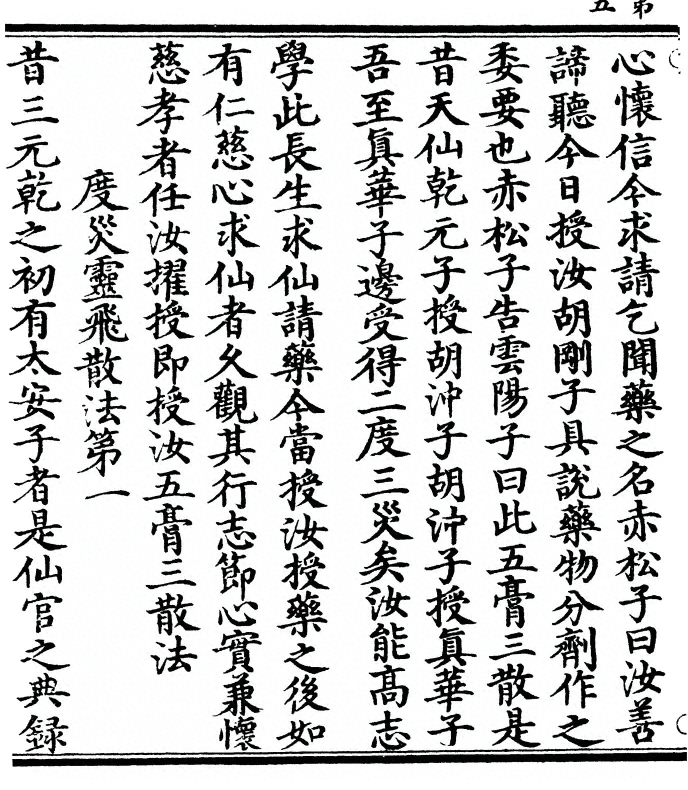 第五
心懷信今求請乞聞藥之名赤松子曰汝善
諦聽今日授汝胡剛子具説藥物分劑作之
委要也赤松子告雲陽子曰此五膏三散是
昔天仙乾元子授胡沖子胡沖子授眞華子
吾至眞華子邊受得二度三災矣汝能髙志
學此長生求仙請藥今當授汝授藥之後如
有仁慈心求仙者久觀其行志節心實兼懷
慈孝者任汝擢授即授汝五膏三散法
度災靈飛散法第一
昔三元乾之初有太安子者是仙官之典録